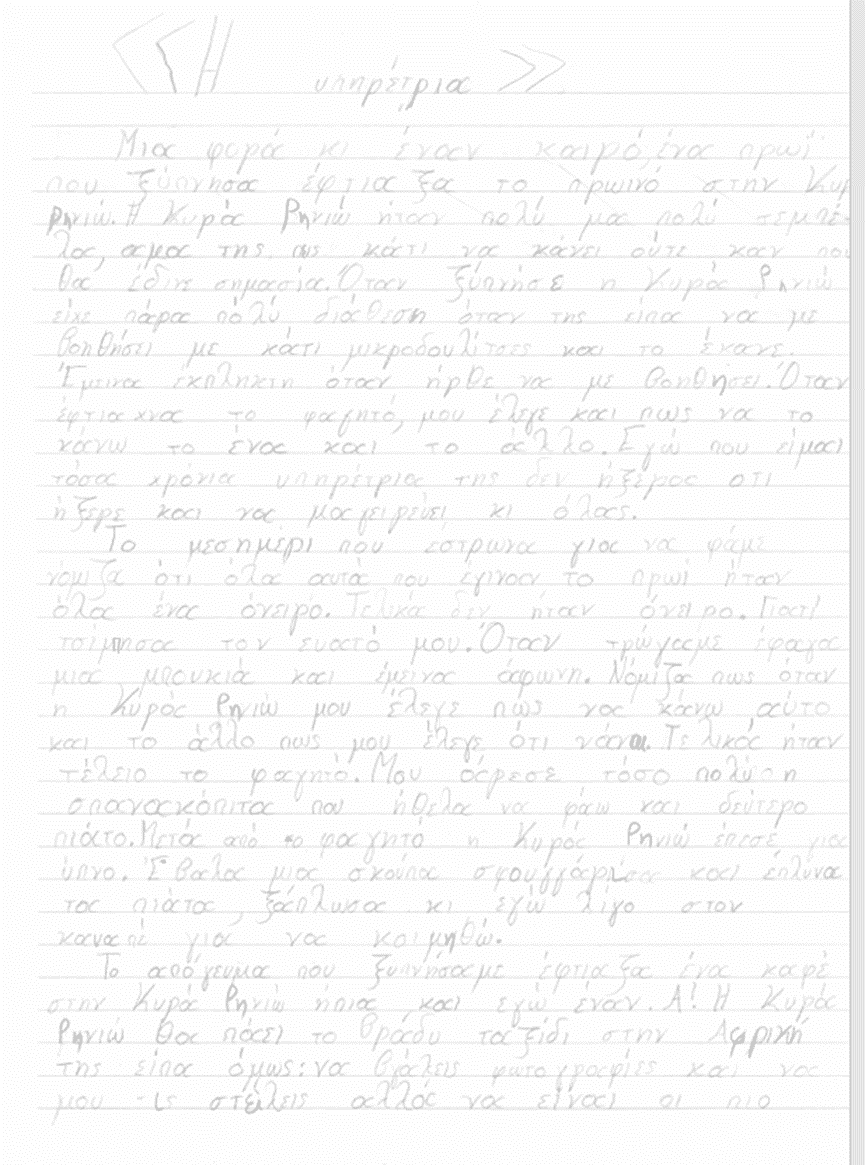 <<Η υπηρέτρια>>
Μια φορά κι έναν καιρό, ένα πρωί
που ξύπνησα έφτιαξα το πρωινό στην Κυρ
Ρηνιώ. Η Κυρά Ρηνιώ ήταν πολύ μα πολύ τεμπέ-
λα, αμα της πω κάτι να κάνει ούτε καν που
θα έδινε σημασία. Όταν ξύπνησε η Κυρά Ρηνιώ
είχε πάρα πολύ διάθεση όταν της είπα να με
βοηθήσει με κάτι μικροδουλίτσες και το έκανε.
Έμτινα έκπληκτη όταν ήρθε να με βοηθήσει. Όταν
έφτιαχνα το φαγητό, μου έλεγε και πως να το
κάνω το ένα και το άλλο. Εγώ που είμαι
τόσα χρόνια υπηρέτρια της δεν ήξερα οτι
ήξερε και να μαγειρεύει κι όλας.
Το μεσημέρι που έστρωνα για να φάμε
νόμιζα ότι όλα αυτά που έγιναν το πρωί ήταν
όλα ένα όνειρο. Τελικά δεν ήταν όνειρο. Γιατί
τσίμπησα τον ευατό μου. Όταν τρώγαμε έφαγα
μια μπουκιά και έμεινα άφωνη. Νόμιζα πως όταν
η Κυρά Ρηνιώ μου έλεγε πως να κάνω αύτο
και το άλλο πως μου έλεγε ότι νάναι. Τελικά ήταν
τέλειο το φαγητό. Μου άρεσε τόσο πολύ η
σπανακόπιτα που ήθελα να φάω και δεύτερο
πιάτο. Μετά από το φαγητό η Κυρά Ρηνιώ έπεσε για
ύπνο. Έβαλα μια σκούπα σφουγγάρισα και έπλυνα
τα πιάτα, ξάπλωσα κι εγώ λίγο στον
καναπέ για να κοιμηθώ.
Το απόγευμα που ξυπνήσαμε έφτιαξα ένα καφέ
στην Κυρά Ρηνιώ ήπια και εγώ έναν. Α! Η Κυρά
Ρηνιώ θα πάει το βράδυ ταξίδι στην Αφρική
της είπα όμως: να βγάλεις φωτογραφίες και να
μου τις στείλεις αλλά να είναι οι πιο